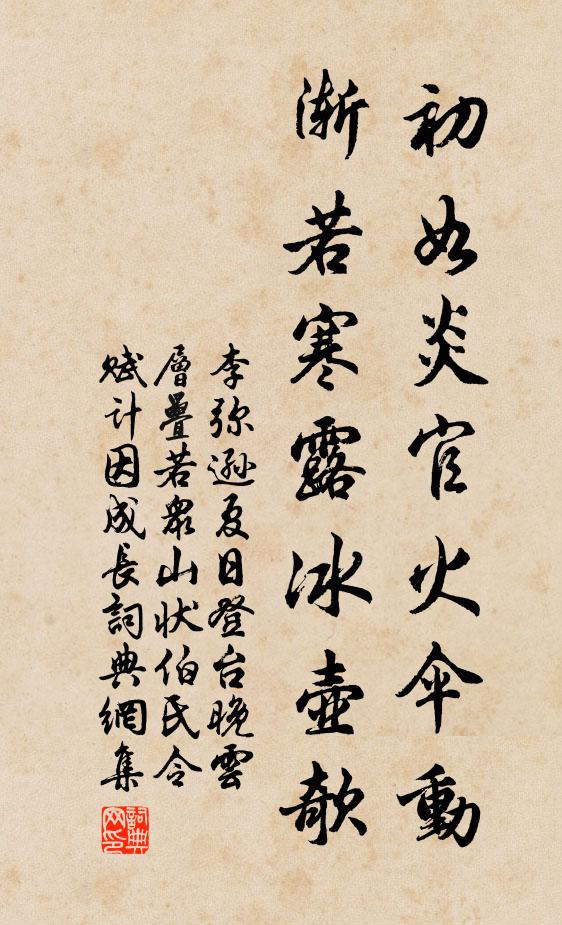 初如炎官火伞動
漸若寒露冰壺欹
李弥遜夏日登台晚雲
層疊若眾山狀伯氏令
賦計因成長詞典網集
詞典
网印